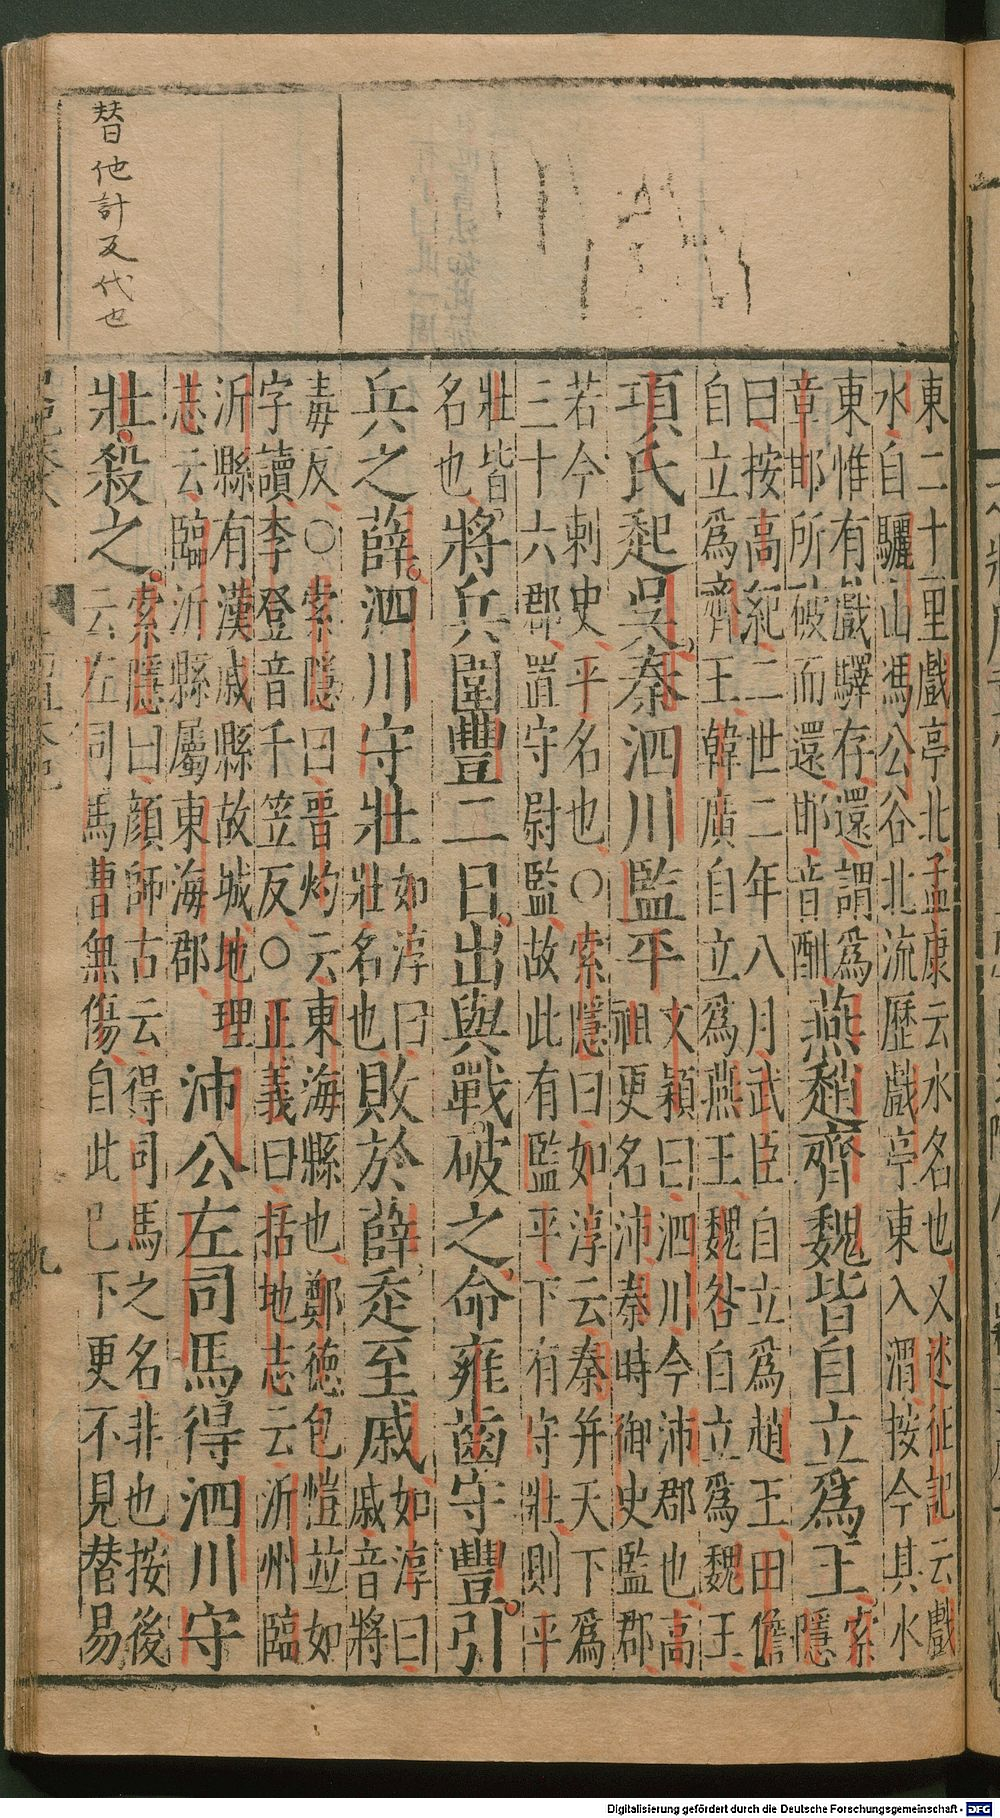 東二十里戲亭北孟康云水名也又述征記云戲
水自驪山馮公谷北流歷戲亭東入渭按今其水
東惟有戲驛存還謂爲
章邯所破而還邯音酣
燕趙齊魏皆自立爲王
索
隱
曰按高紀二世二年八月武臣自立爲趙王田儋
自立爲齊王韓廣自立爲燕王魏咎自立爲魏王
項氏起吳秦泗川監平
文穎曰泗川今沛郡也高
祖更名沛秦時御史監郡
若今刺史平名也○索隱曰如淳云秦并天下爲
三十六郡置守尉監故此有監平下有守壯則平
壯皆
名也
將兵圍豐二日出與戰破之命雍齒守豐引
兵之薛泗川守壯
如淳曰
壯名也
敗於薛走至戚
如淳曰
戚音將
毒反○索隱曰晉灼云東海縣也鄭德包愷並如
字讀李登音千笠反○正義曰括地志云沂州臨
沂縣有漢戚縣故城地理
志云臨沂縣屬東海郡
沛公左司馬得泗川守
壯殺之
索隱曰顏師古云得司馬之名非也按後
云左司馬曹無傷自此已下更不見替易
替他計反代也
九
Digitalisierung gefördert durch die Deutsche Forschungsgemeinschaft - DFG